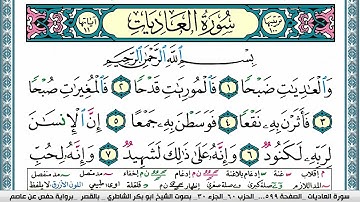 سُورَةُ العَادِيَاتِ
بِسْمِ ٱللَّهِ ٱلرَّحْمَٰنِ ٱلرَّحِيمِ
وَٱلْعَٰدِيَٰتِ ضَبْحًا ١ فَٱلْمُورِيَٰتِ قَدْحًا ٢ فَٱلْمُغِيرَٰتِ صُبْحًا
٣ فَأَثَرْنَ بِهِۦ نَقْعًا ٤ فَوَسَطْنَ بِهِۦ جَمْعًا ٥ إِنَّ ٱلْإِنسَٰنَ
لِرَبِّهِۦ لَكَنُودٌ ٦ وَإِنَّهُۥ عَلَىٰ ذَٰلِكَ لَشَهِيدٌ ٧ وَإِنَّهُۥ لِحُبِّ
سورة العاديات - الصفحة ٥٩٩ - الجزء ٦٠ - الجزء ٣٠ - بصوت الشيخ ابو بكر الشاطري - بالقصر - برواية حفص عن عاصم